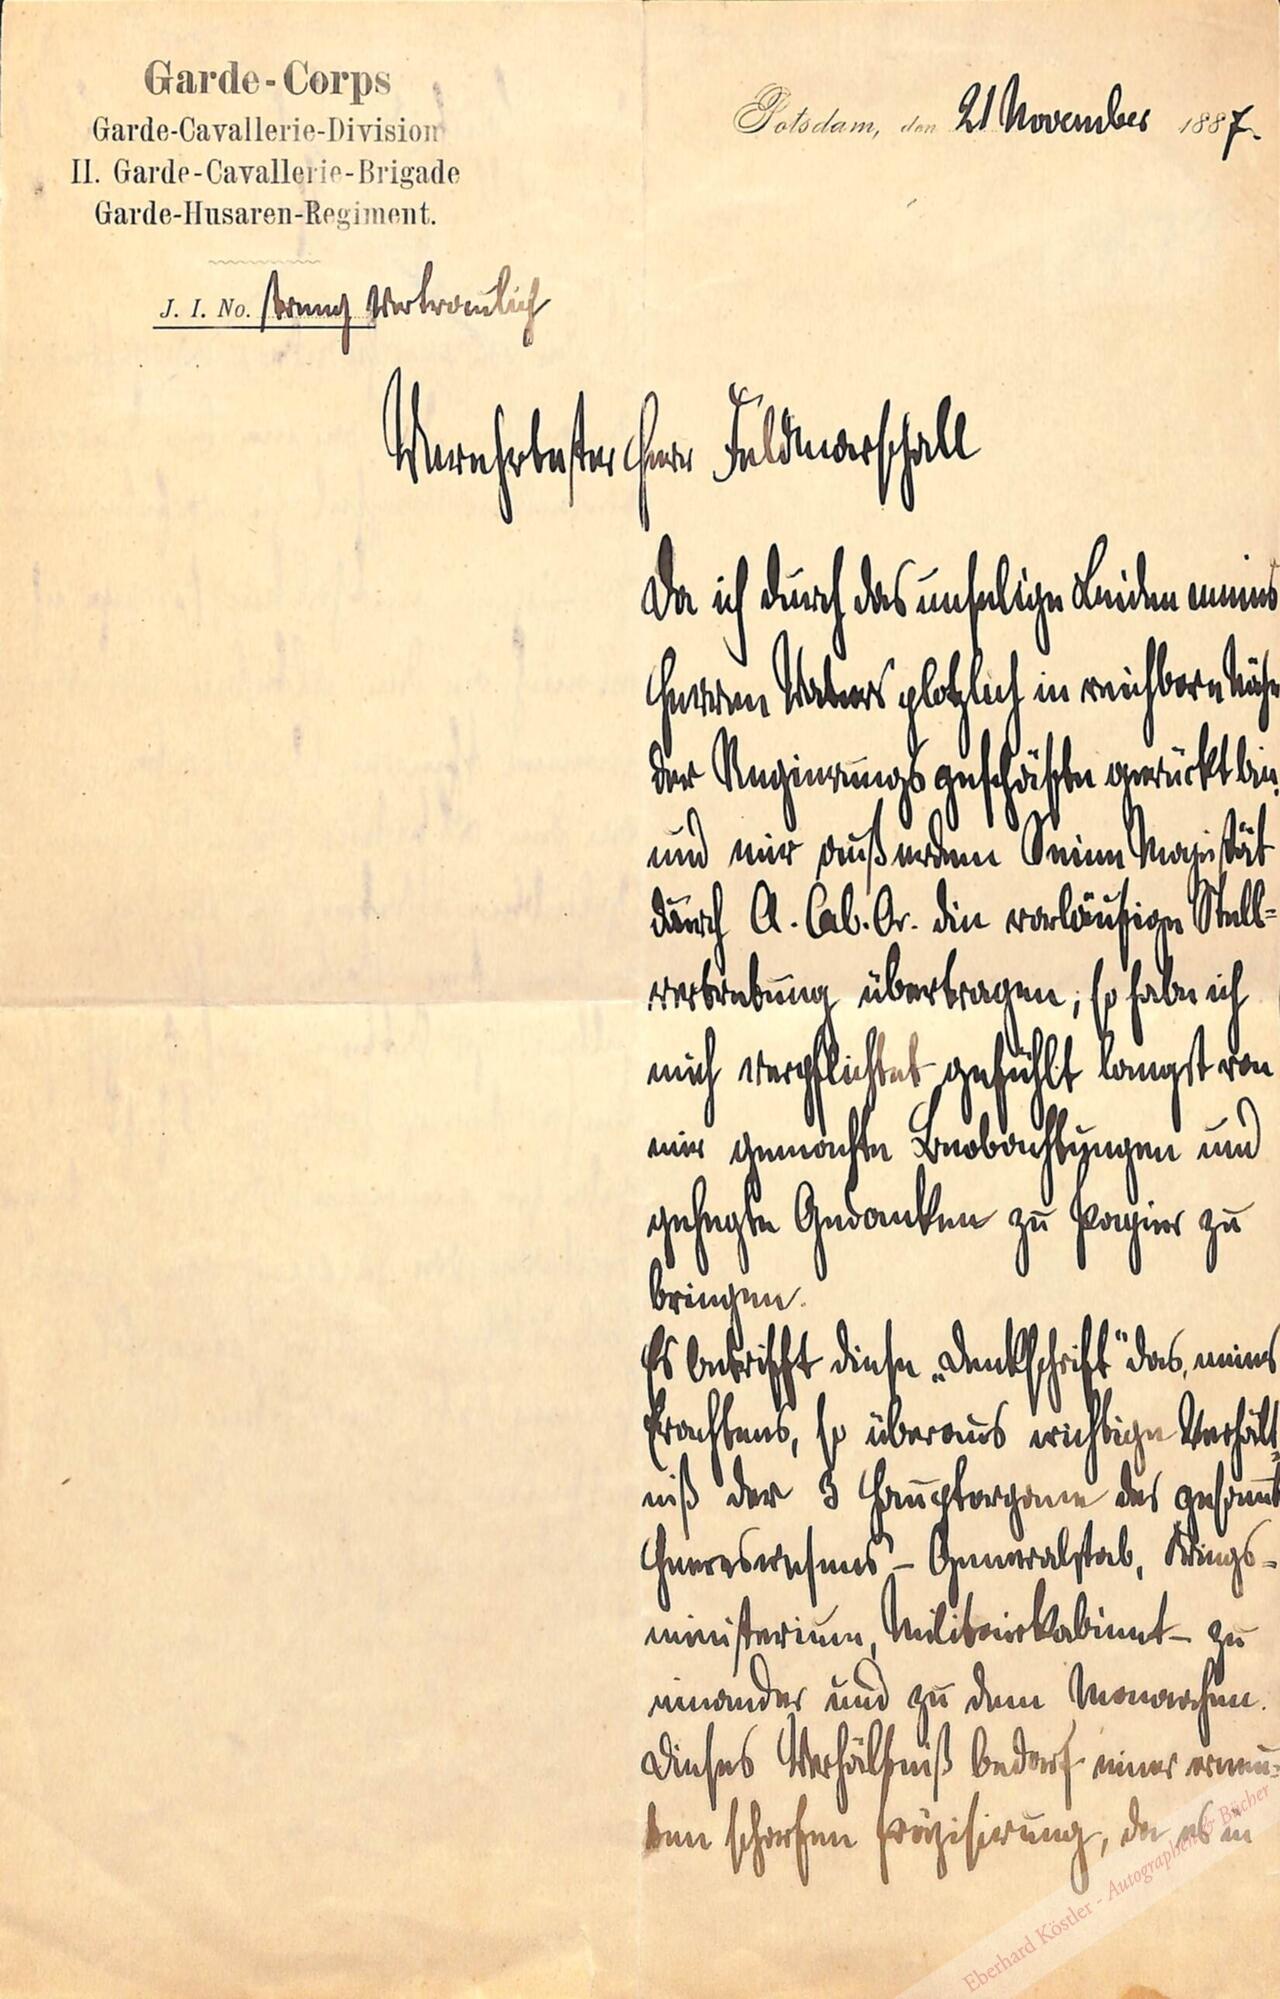 Garde-Corps
Garde-Cavallerie-Division
II. Garde-Cavallerie-Brigade
Garde-Husaren-Regiment.
Potsdam, den 21 November 1887.
J. I. No. streng Vertraulich
Verehrtester Herr Feldmarschall
Da ich durch das unselige Leiden meines
Herren Vaters plötzlich in reichbare Nähe
der Regierungsgeschäfte gerückt bin,
und mir außerdem Seine Majestät
durch A. Cab. Or. die vorläufige Stell-
vertretung übertragen, so habe ich
mich verpflichtet gefühlt langst von
mir gemachte Beobachtungen und
gehegte Gedanken zu Papier zu
bringen.
Es betrifft diese „Denkschrift" das, meines
Erachtens, so überaus wichtige Verhält-
niß der 3 Hauptorgane des gesamt
Heereswesens – Generalstab, Kriegs-
ministerium, Militairkabinet – zu
einander und zu dem Monarchen.
Dieses Verhältniß bedarf einer erneu-
ten scharfen Präzisirung, da es in
Eberhard Köstler - Autographen & Bücher